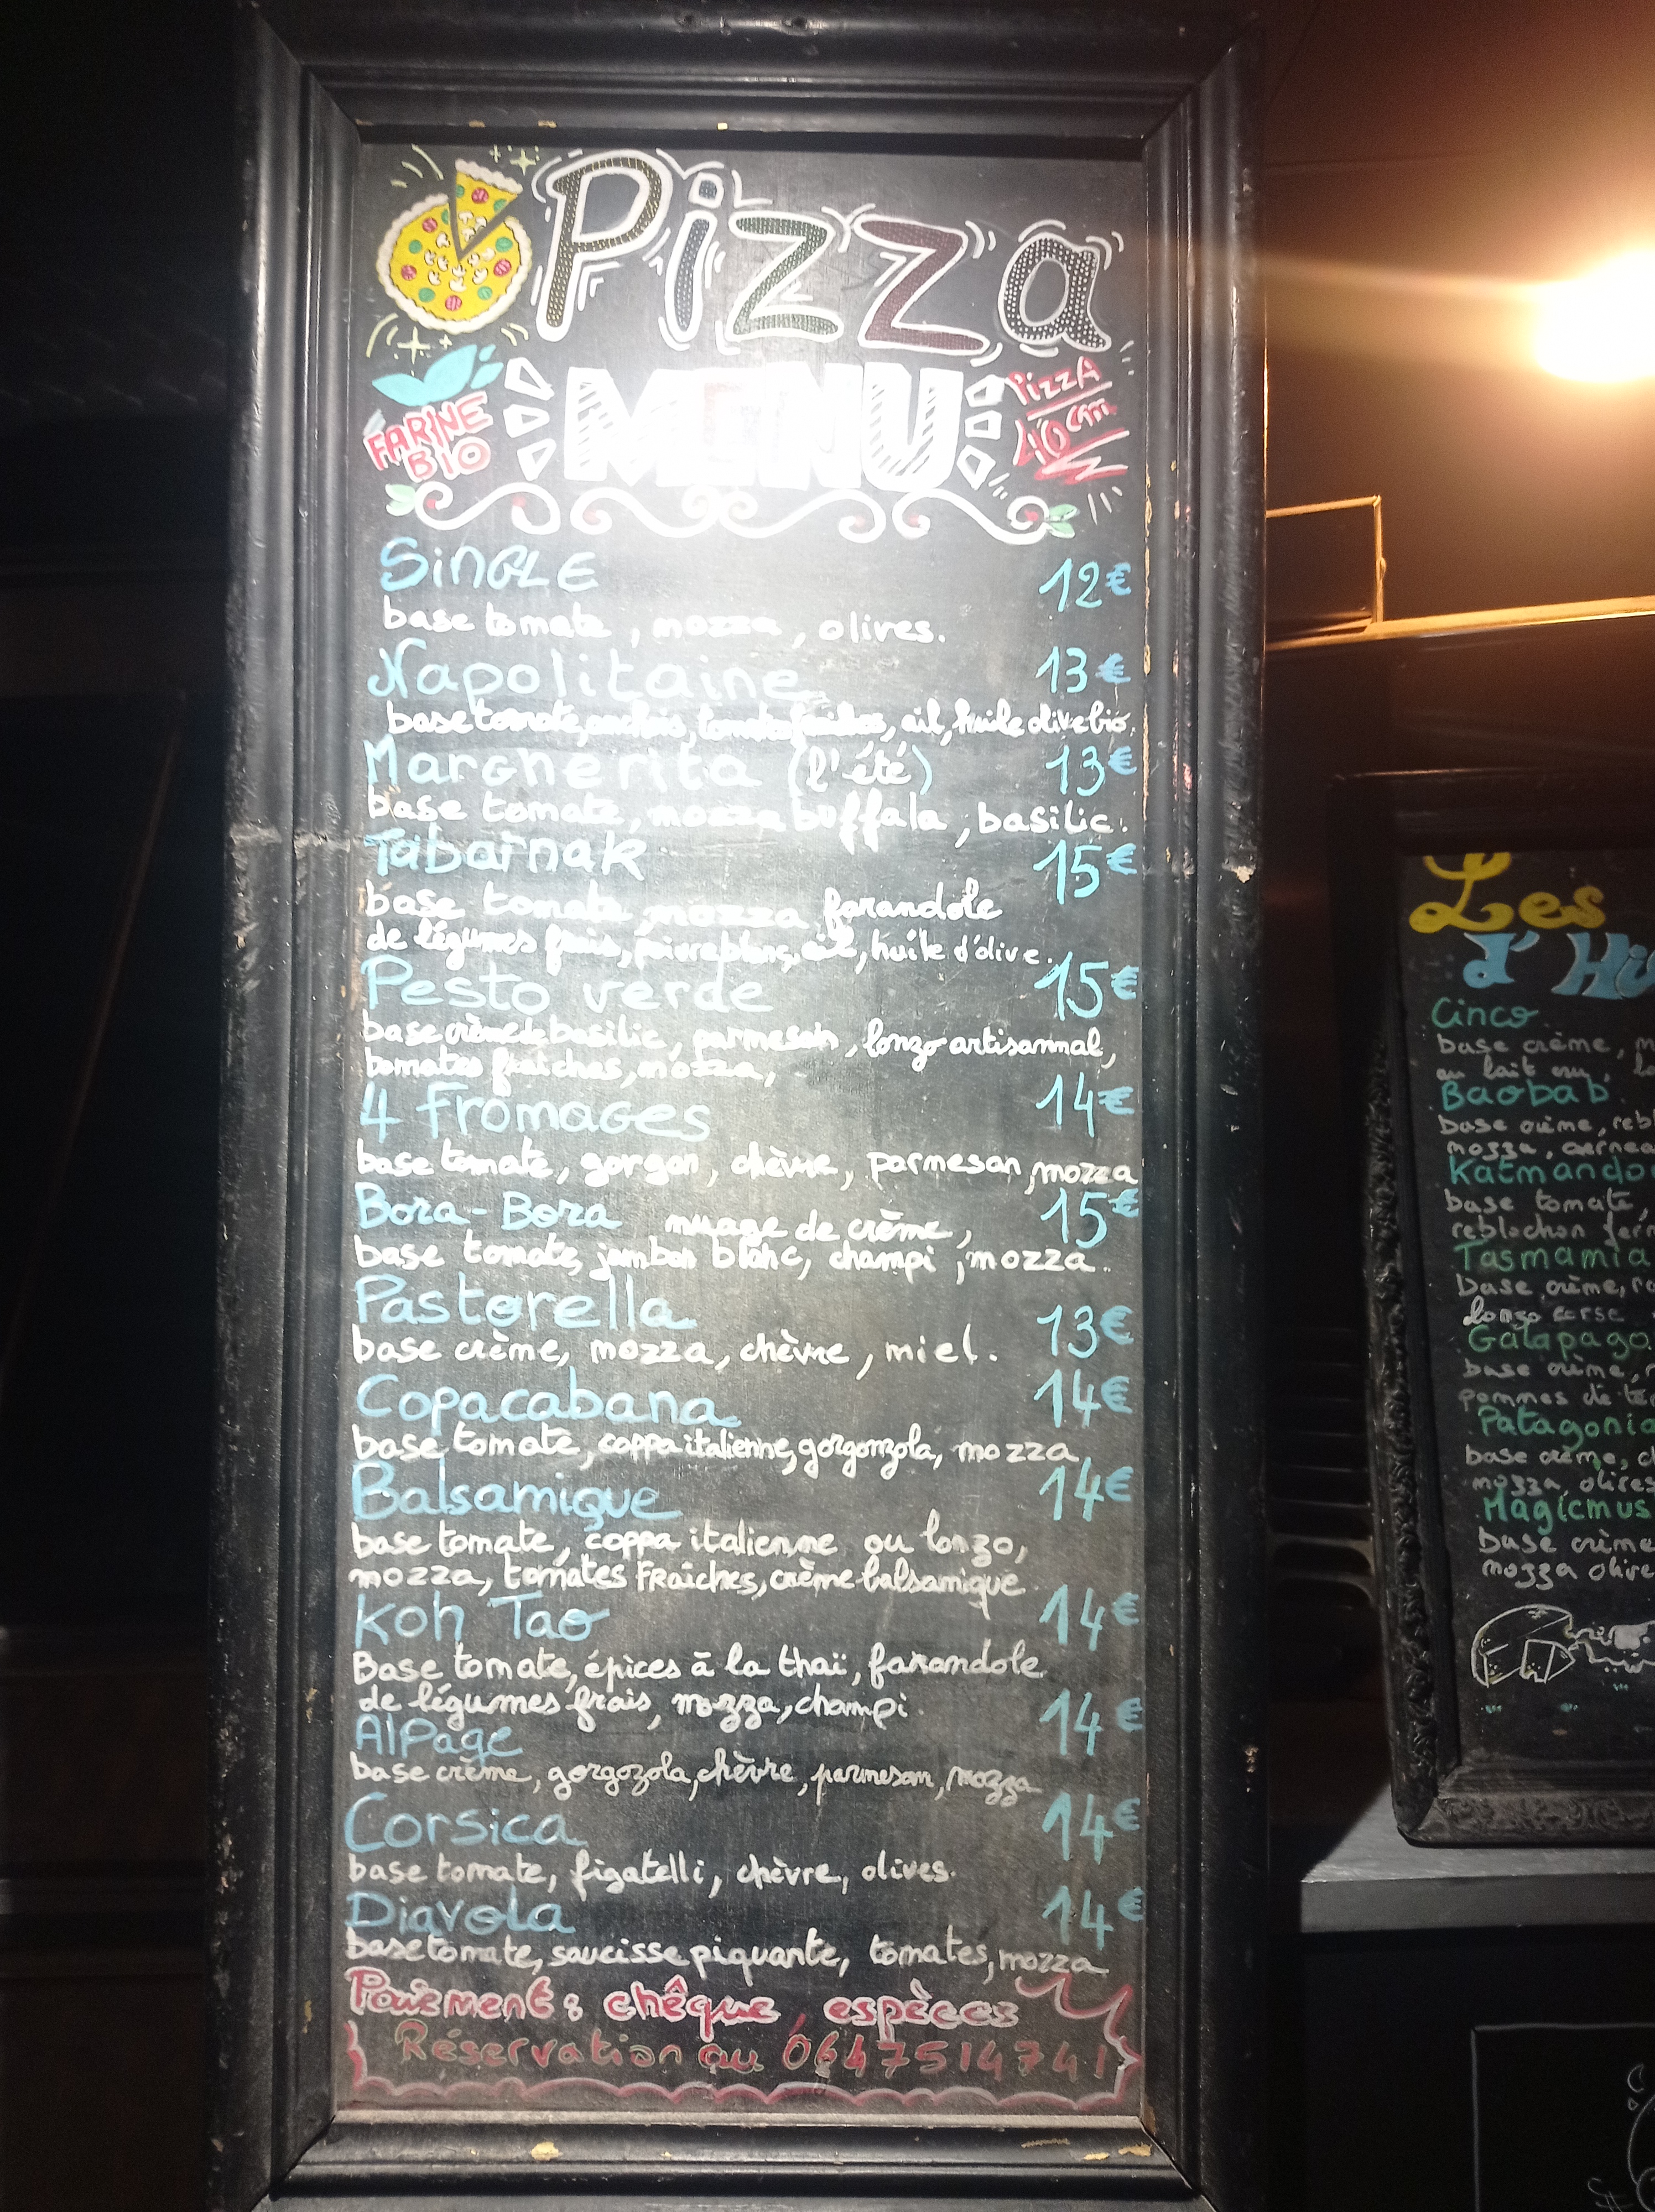 Pizza
MENU
FARINE
BIO
Pizza
40cm
Single 12€
base tomate, mozza, olives.
Napolitaine 13€
base tomate, anchois, tomates fraîches, ail, huile olive bio.
Margherita (l'été) 13€
base tomate, mozza buffala, basilic.
Tabarnak 15€
base tomate, mozza farandole
de légumes frais, poivre blanc, ail, huile d'olive.
Pesto verde 15€
base crème de basilic, parmesan, lonzo artisannal,
tomates fraîches, mozza,
4 fromages 14€
base tomate, gorgon, chèvre, parmesan, mozza
Bora-Bora nuage de crème, 15€
base tomate, jambon blanc, champi, mozza.
Pastorella 13€
base crème, mozza, chèvre, miel.
Copacabana 14€
base tomate, coppa italienne, gorgonzola, mozza
Balsamique 14€
base tomate, coppa italienne ou lonzo,
mozza, tomates Fraîches, crème balsamique.
Koh Tao 14€
Base tomate, épices à la thaï, farandole
de légumes frais, mozza, champi.
AlPage 14€
base crème, gorgozola, chèvre, parmesan, mozza
Corsica 14€
base tomate, figatelli, chèvre, olives.
Diavola 14€
base tomate, saucisse piquante, tomates, mozza
Paiement: chêque, espèces
Réservation au 0647514741
Les
d'Hi
Cinco
base crème, m
au lait cru, lo
Baobab
base crème, reb
mozza, cernea
Katmando
base tomate,
reblochon ferm
Tasmania
base crème, ra
lonzo corse
Galapago
base crème,
pommes de te
Patagonia
base crème, c
mozza, olives
Magicmus
base crème
mozza olive